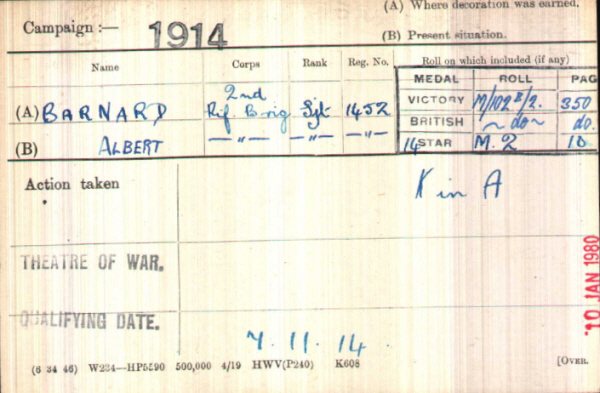 (A) Where decoration was earned.
Campaign :— 1914
(B) Present situation.
Name Corps Rank Reg. No. Roll on which included (if any)
MEDAL ROLL PAG
2nd
(A) BARNARD Rif. Brig Sjt 1452 VICTORY M/102B/2. 350
BRITISH ~ do ~ do.
(B) ALBERT —"— —"— —"— 14 STAR M.2 10
Action taken K in A
THEATRE OF WAR.
QUALIFYING DATE. 7.11.14
10 JAN 1980
(6 34 46) W234—HP5590 500,000 4/19 HWV(P240) K608 [OVER.